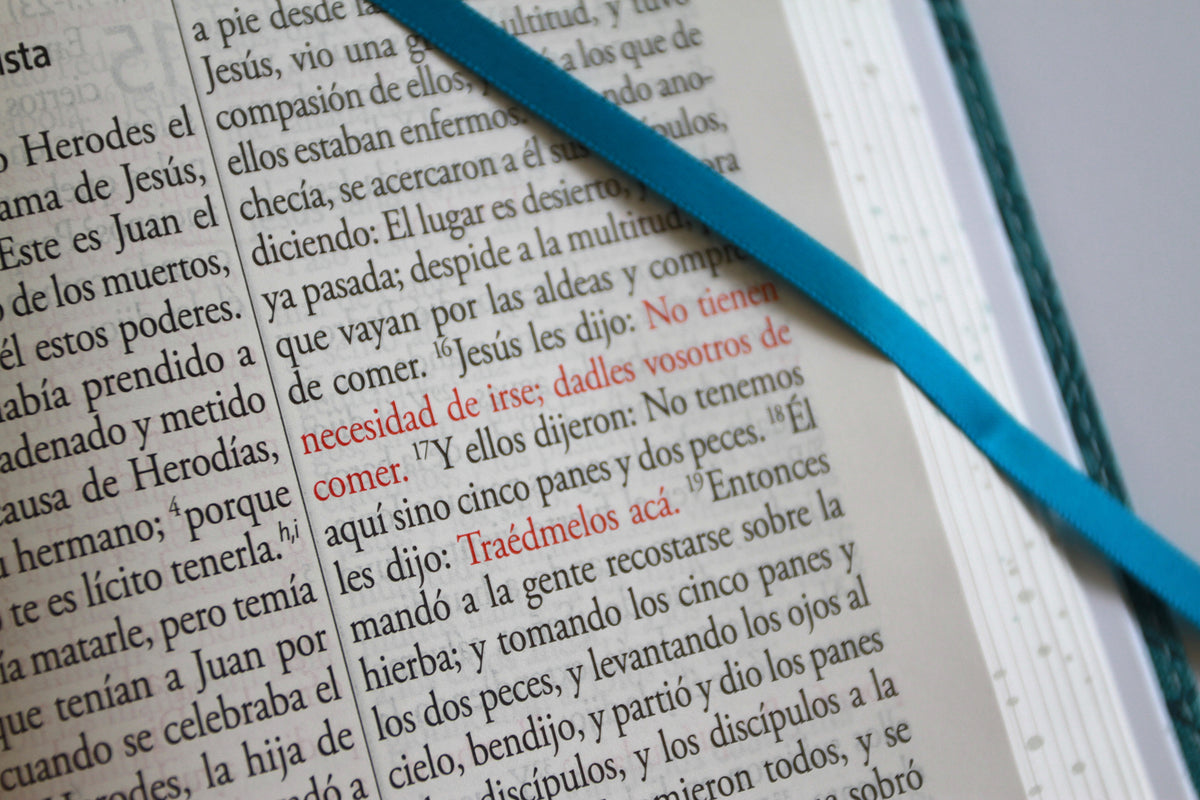 ista
Herodes el
ama de Jesús,
Este es Juan el
de los muertos,
él estos poderes.
había prendido a
adenado y metido
causa de Herodías,
hermano; 4porque
te es lícito tenerla.h,i
ía matarle, pero temía
que tenían a Juan por
cuando se celebraba el
Herodes, la hija de
dó a
a pie desde la
Jesús, vio una multitud, y tuvo
compasión de ellos, a los que de
ellos estaban enfermos. ndo ano-
checía, se acercaron a él sus pulos,
diciendo: El lugar es desierto, ora
ya pasada; despide a la multitud,
que vayan por las aldeas y compre
de comer. 16Jesús les dijo: No tienen
necesidad de irse; dadles vosotros de
comer. 17Y ellos dijeron: No tenemos
aquí sino cinco panes y dos peces. 18Él
les dijo: Traédmelos acá. 19Entonces
mandó a la gente recostarse sobre la
hierba; y tomando los cinco panes y
los dos peces, y levantando los ojos al
cielo, bendijo, y partió y dio los panes
discípulos, y los discípulos a la
mieron todos, y se
sobró